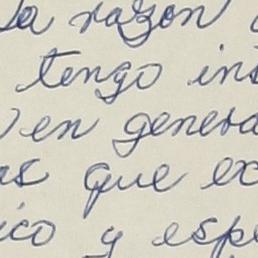 La razon
tengo ins
en genera
as que ex
ico y espe